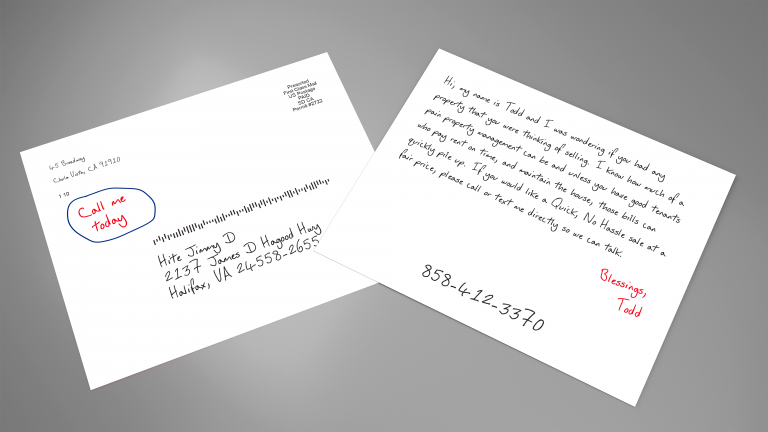 Presorted
First Class Mail
US Postage
PAID
SD CA
Permit #2732
45 Broadway
Chula Vista, CA 91910
1 10
Call me
today
Hite Jimmy D
2137 James D Hagood Hwy
Halifax, VA 24558-2655
Hi, my name is Todd and I was wondering if you had any
property that you were thinking of selling. I know how much of a
pain property management can be and unless you have good tenants
who pay rent on time, and maintain the house, those bills can
quickly pile up. If you would like a Quick, No Hassle sale at a
fair price, please call or text me directly so we can talk.
Blessings,
Todd
858-412-3370